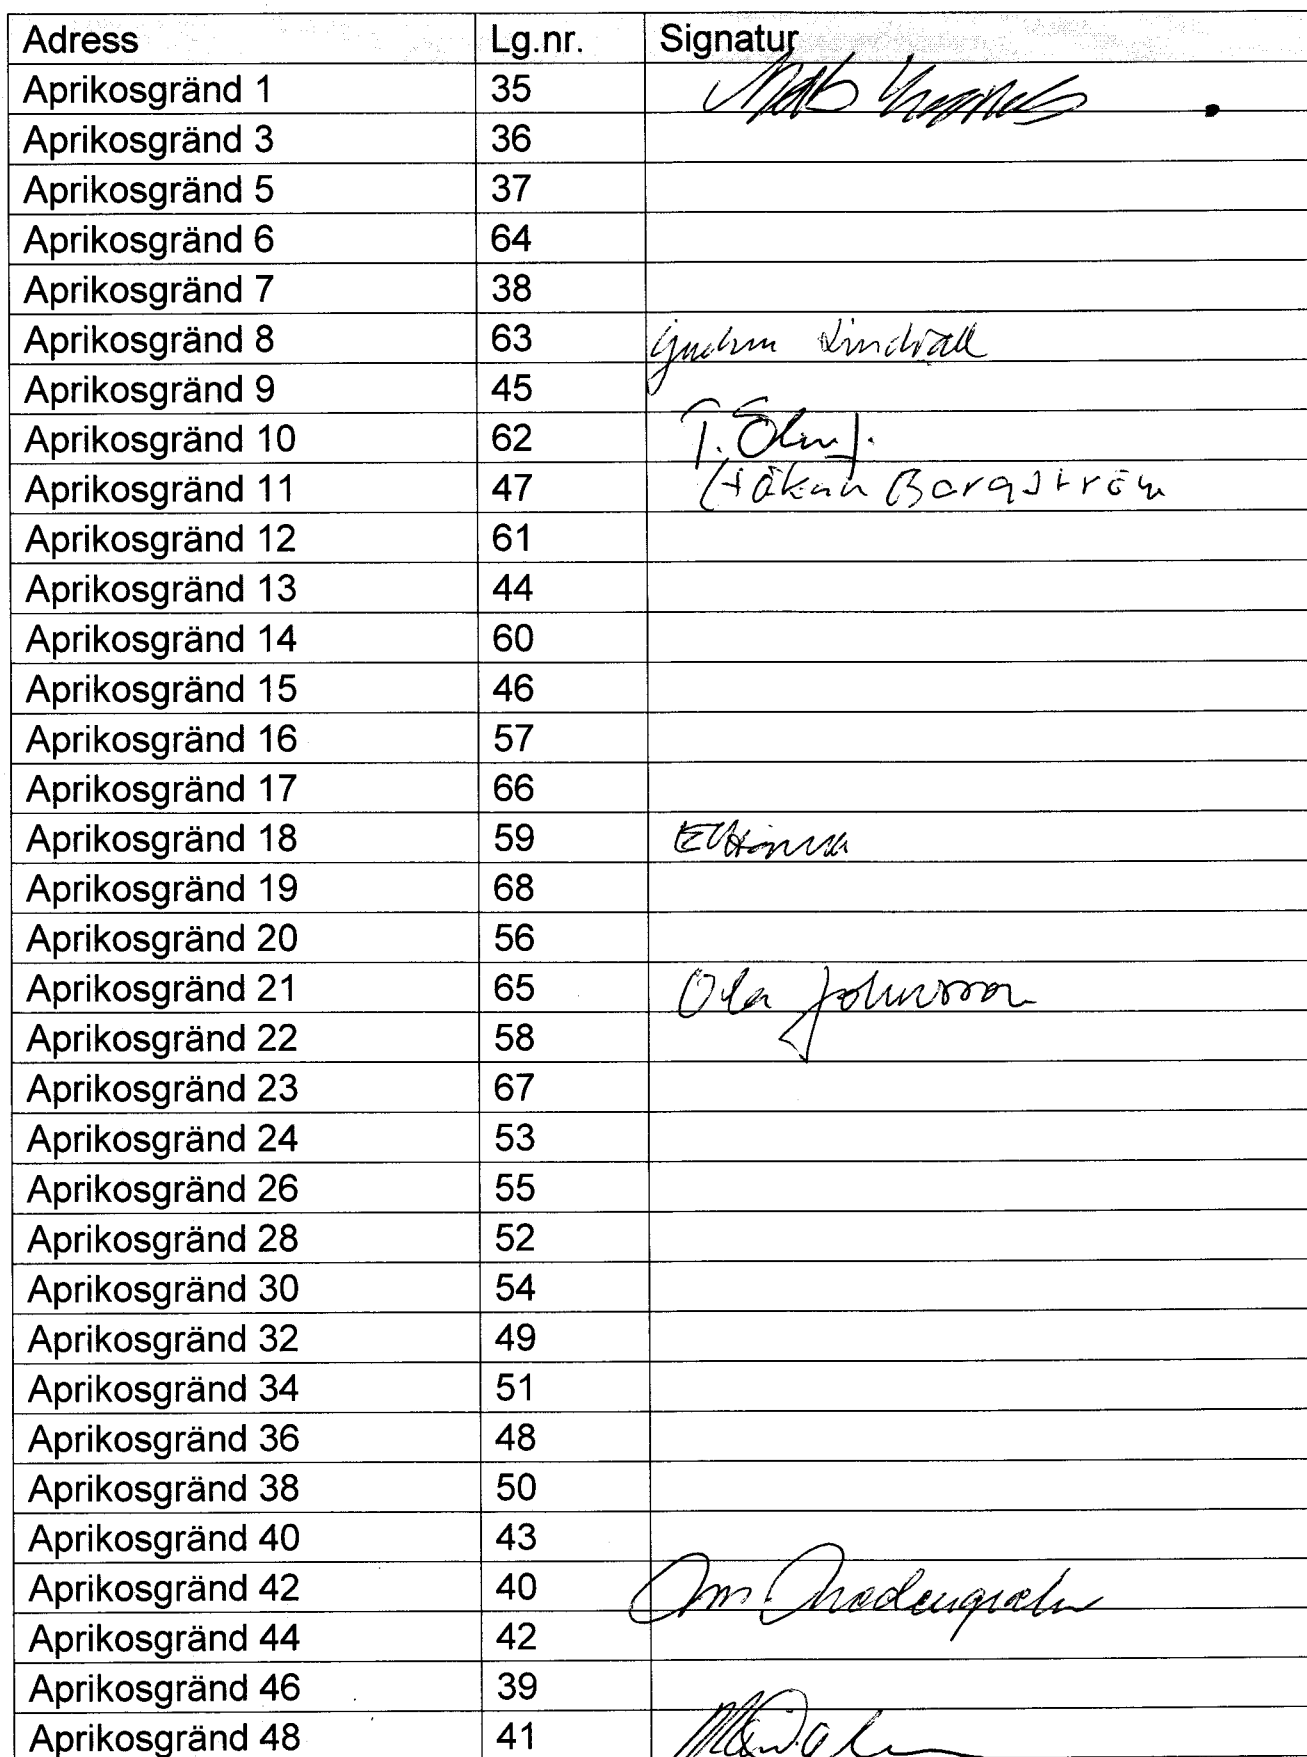 Adress Lg.nr. Signatur
Aprikosgränd 1 35 Mats
Aprikosgränd 3 36
Aprikosgränd 5 37
Aprikosgränd 6 64
Aprikosgränd 7 38
Aprikosgränd 8 63 Gudrun Lindvall
Aprikosgränd 9 45
Aprikosgränd 10 62 T.
Aprikosgränd 11 47 Håkan Bergström
Aprikosgränd 12 61
Aprikosgränd 13 44
Aprikosgränd 14 60
Aprikosgränd 15 46
Aprikosgränd 16 57
Aprikosgränd 17 66
Aprikosgränd 18 59
Aprikosgränd 19 68
Aprikosgränd 20 56
Aprikosgränd 21 65 Ola Johnsson
Aprikosgränd 22 58
Aprikosgränd 23 67
Aprikosgränd 24 53
Aprikosgränd 26 55
Aprikosgränd 28 52
Aprikosgränd 30 54
Aprikosgränd 32 49
Aprikosgränd 34 51
Aprikosgränd 36 48
Aprikosgränd 38 50
Aprikosgränd 40 43
Aprikosgränd 42 40
Aprikosgränd 44 42
Aprikosgränd 46 39
Aprikosgränd 48 41